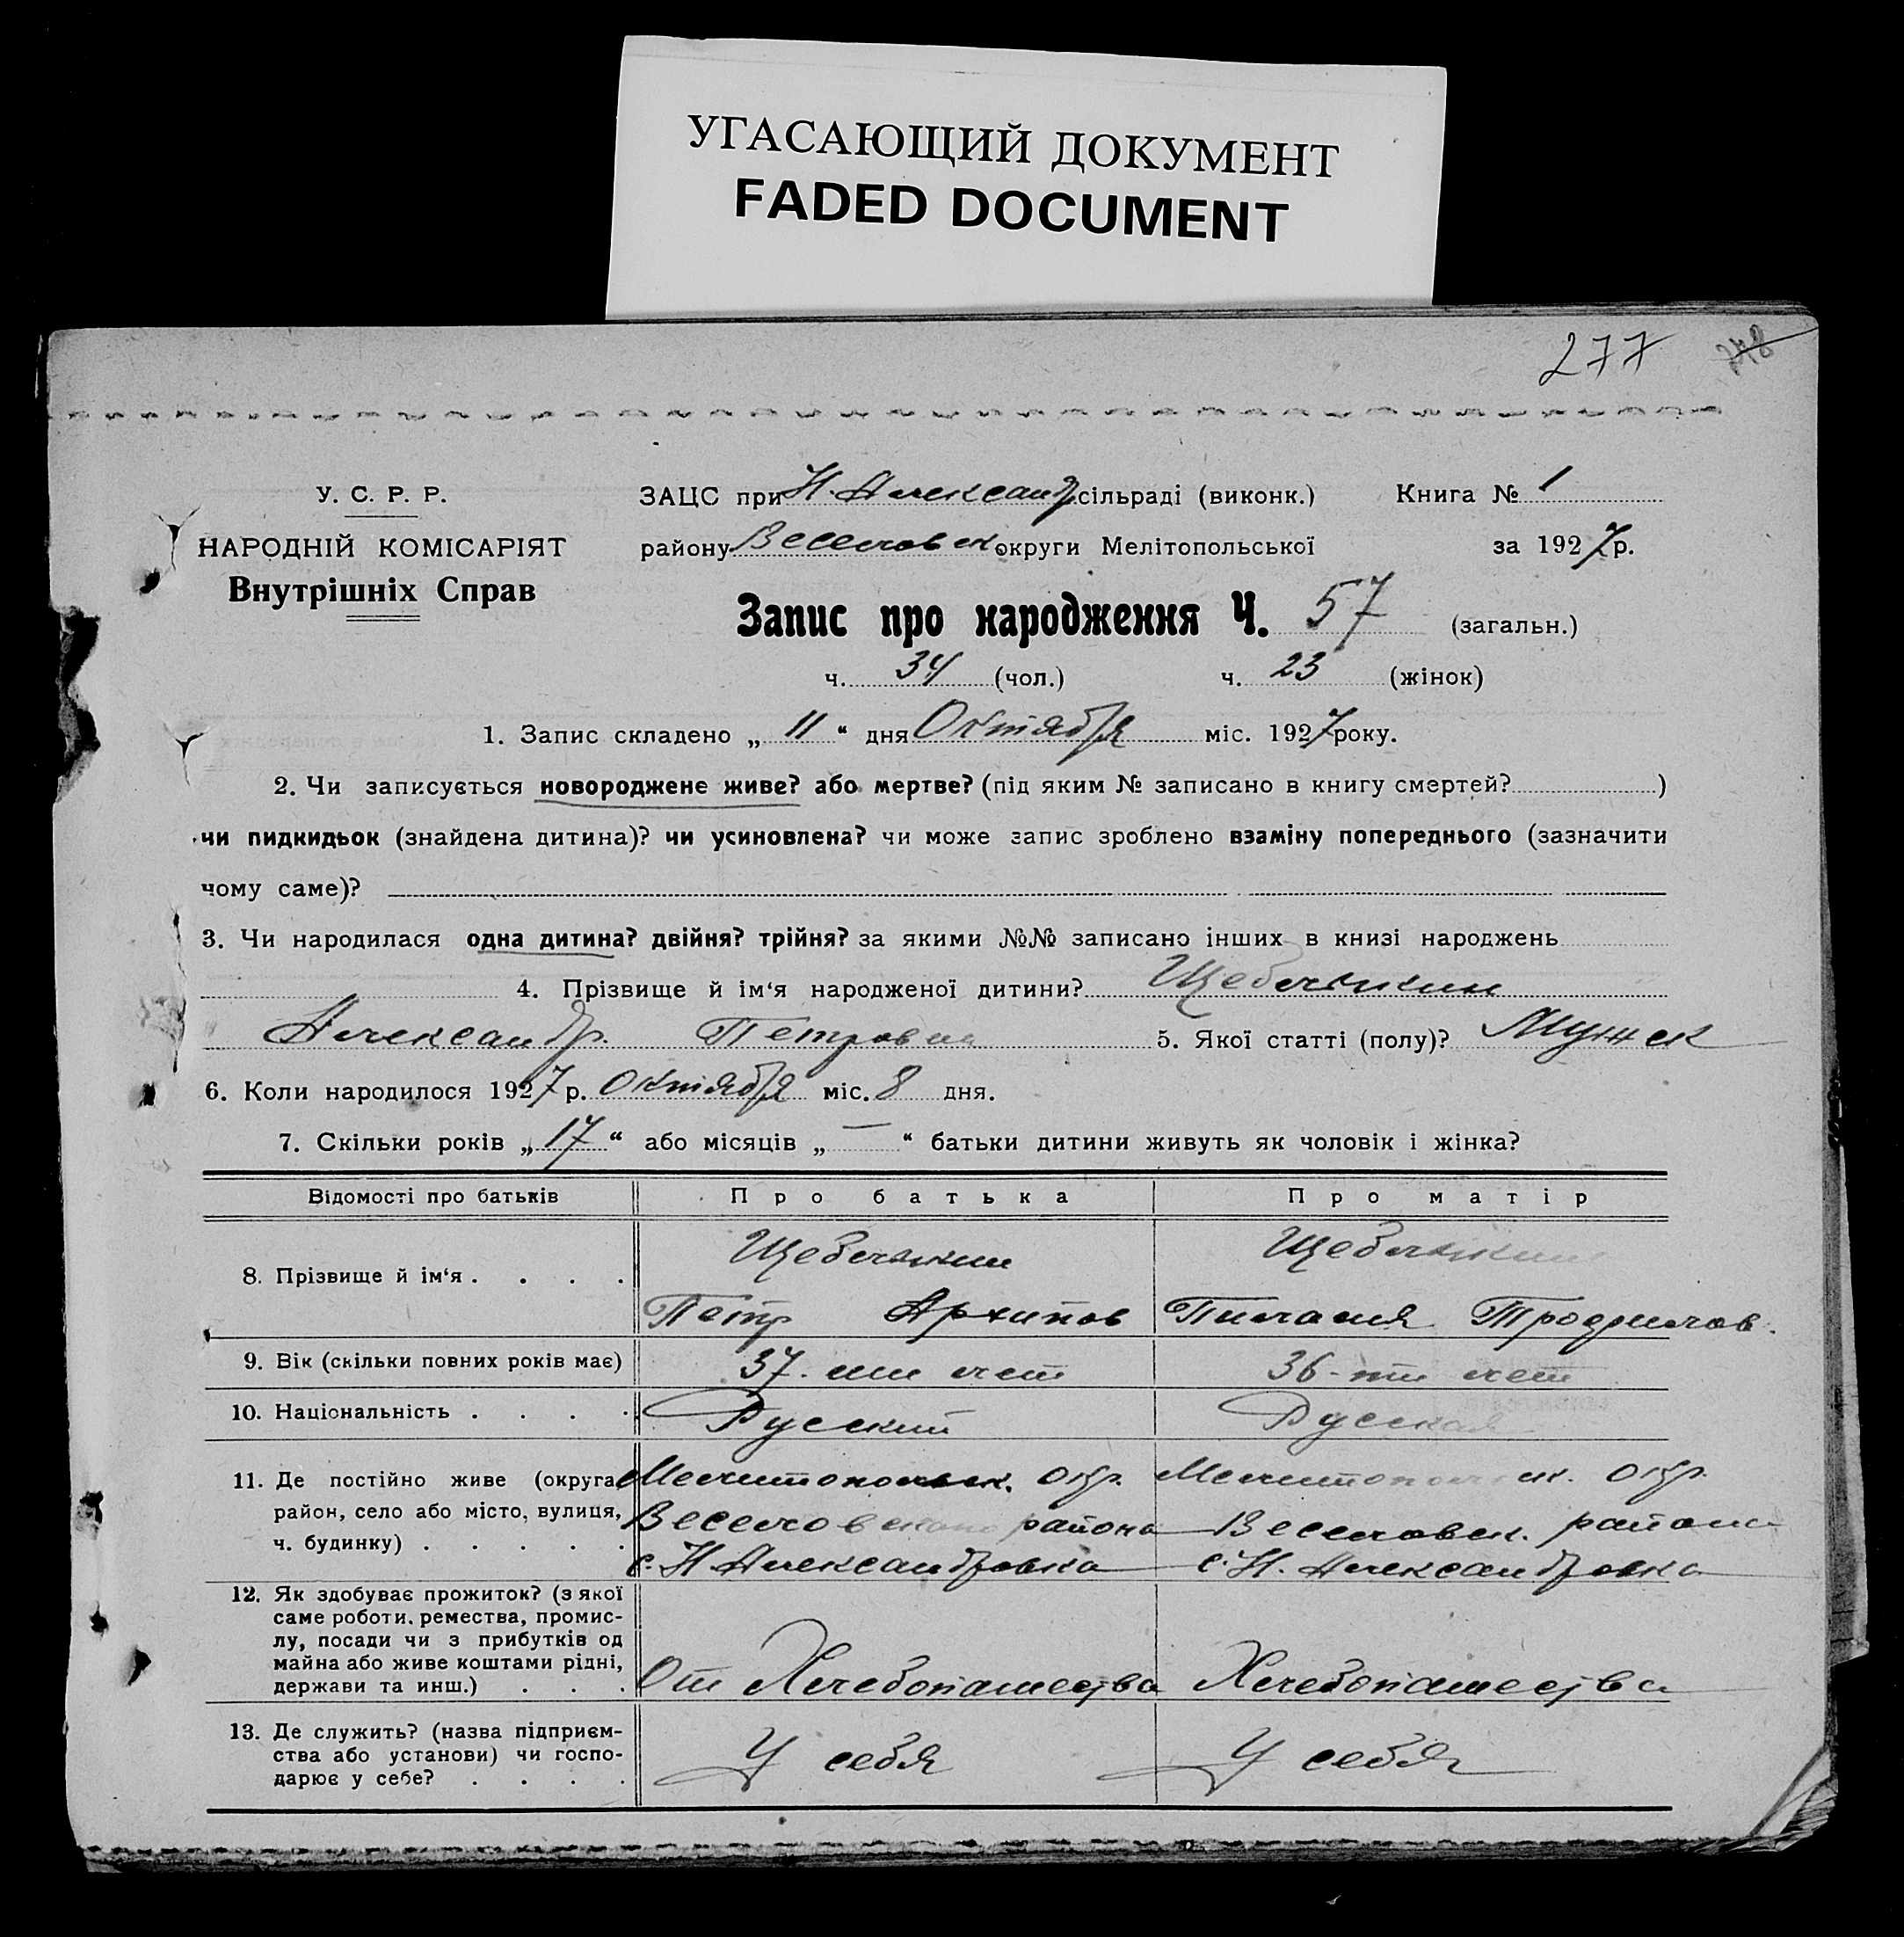 УГАСАЮЩИЙ ДОКУМЕНТ
FADED DOCUMENT
277 248
У. С. Р. Р.
НАРОДНІЙ КОМІСАРІЯТ
Внутрішніх Справ
ЗАЦС при Н. Александр. сільраді (виконк.) Книга № 1
району Веселовск. округи Мелітопольської за 1927 р.
Запис про народження Ч. 57 (загальн.)
ч. 34 (чол.) ч. 23 (жінок)
1. Запис складено „ 11 “ дня Октября міс. 1927 року.
2. Чи записується новороджене живе? або мертве? (під яким № записано в книгу смертей? )
чи пидкидьок (знайдена дитина)? чи усиновлена? чи може запис зроблено взаміну попереднього (зазначити
чому саме)?
3. Чи народилася одна дитина? двійня? трійня? за якими №№ записано інших в книзі народжень
4. Прізвище й ім‘я народженої дитини? Щеблыкин
Александр. Петрович 5. Якої статті (полу)? Мужск
6. Коли народилося 1927 р. Октября міс. 8 дня.
7. Скільки років „ 17 “ або місяців „ — “ батьки дитини живуть як чоловік і жінка?
Відомості про батьків Про батька Про матір
8. Прізвище й ім‘я . . . . Щеблыкин Щеблыкин
Петр Архипов Пилагия Трофимов.
9. Вік (скільки повних років має) 37-ми лет 36-ти лет
10. Національність . . . . Руский Руская
11. Де постійно живе (округа, Мелитопольск. окр. Мелитопольск. окр.
район, село або місто, вулиця, Веселовского района Веселовск. района
ч. будинку) . . . . . с. Н Александровка с. Н. Александровка
12. Як здобуває прожиток? (з якої
саме роботи, ремества, промис-
лу, посади чи з прибутків од
майна або живе коштами рідні,
держави та инш.) . . . От Хлебопашества Хлебопашества
13. Де служить? (назва підприєм-
ства або установи) чи госпо-
дарює у себе? . . . . У себя У себя